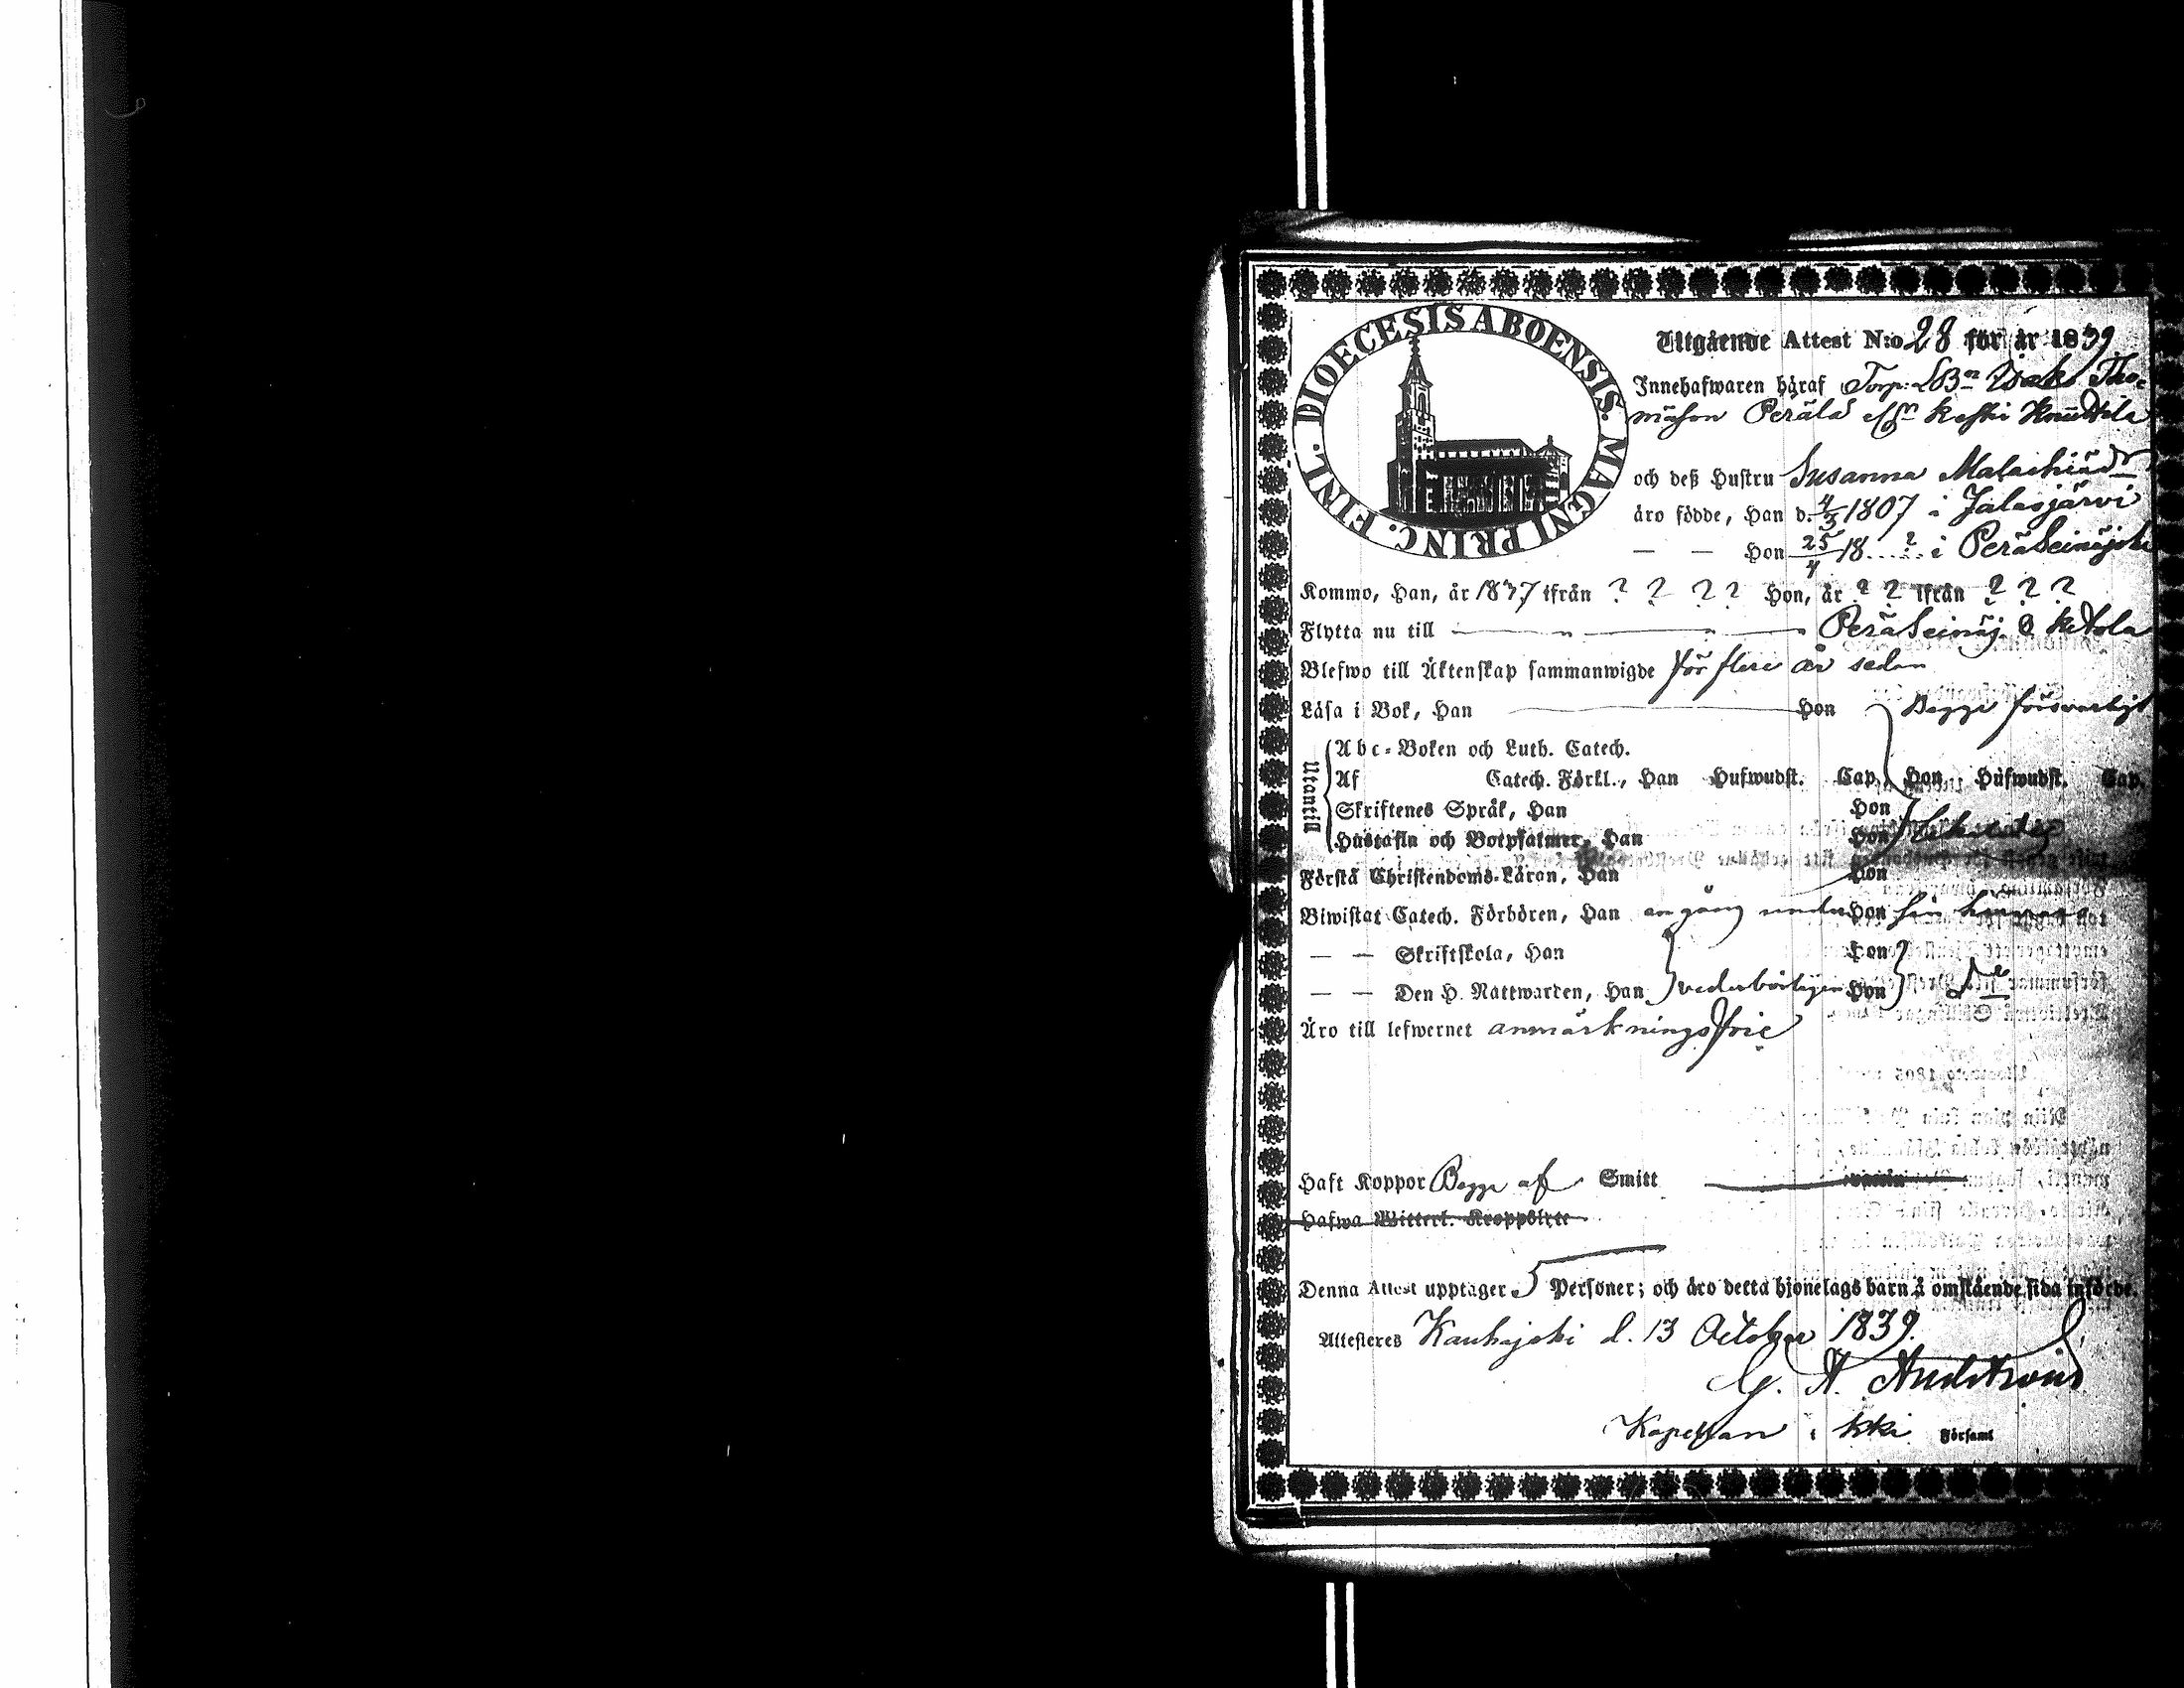 DIOECESIS ABOENSIS. MAGNI PRINC. FINL.
Utgående Attest N:o 28 för år 1839
Innehafwaren häraf Torp:
Perälä Keski Knuuttila
och deß Hustru Susanna Malachiädr
äro födde, Han d. 4/3 1807 i Jalasjärvi
— — Hon 25/4 18....?.... i PeräSeinäjoki
Kommo, Han, år 1837 ifrån ? ? ? ? Hon, år ? ? ifrån ? ? ?
Flytta nu till — " — " — PeräSeinäj. Ketola
Blefwo till Äktenskap sammanwigde för flere år sedan
Läsa i Bok, Han — Hon Begge försvarligt
Utantill
Abc-Boken och Luth. Catech.
Af Catech. Förkl., Han Hufwudst. Cap. Hon Hufwudst. Cap.
Skriftenes Språk, Han Hon
Hustafla och Botpsalmer, Han Hon
Första Christendoms-Läran, Han Hon
Biwistat Catech. Förhören, Han en gång under Hon sin
— — Skriftskola, Han Hon
— — Den H. Nattwarden, Han vederbörligen Hon Do
Äro till lefwernet anmärkningsfrie
Haft Koppor Begge af Smitt vaccin
Hafwa Witterl. Kroppslyte
Denna Attest upptager 5 Personer; och äro detta hjonelags barn å omstående sida införde.
Attesteres Kauhajoki d. 13 October 1839.
G. A.
Kapellan i kki Församl